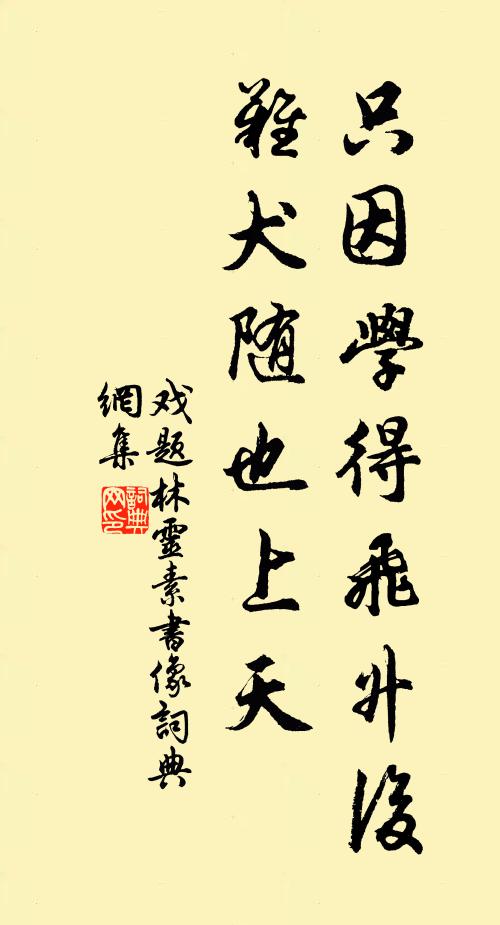 只因學得飛升後
雞犬随也上天
戏题林靈素書像詞典
網集
詞典
网印